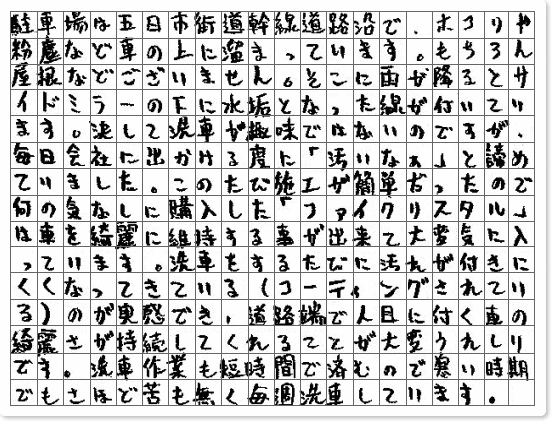 駐車場は五日市街道幹線道路沿で、ホコリや
粉塵など車の上に溜まっています。もちろん
屋根などございません。そこに雨が降るとサ
イドミラーの下に水垢となった線が付いてい
ます。決して洗車が趣味ではないのですが、
毎日会社に出かける度に「汚いなぁ」と諦め
ていました。このたび施工が簡単だったので
何の気なしに購入した「ファイクリスタル」
は車を綺麗に維持する事が出来て大変気に入
っています。洗車をするたびに汚れが付きに
くくなってきている(コーティングされてい
る)のが実感でき、道路端で人目に付く車の
綺麗さが持続してくれることが大変うれしり
です。洗車作業も短時間で済むので寒い時期
でもさほど苦も無く毎週洗車しています。